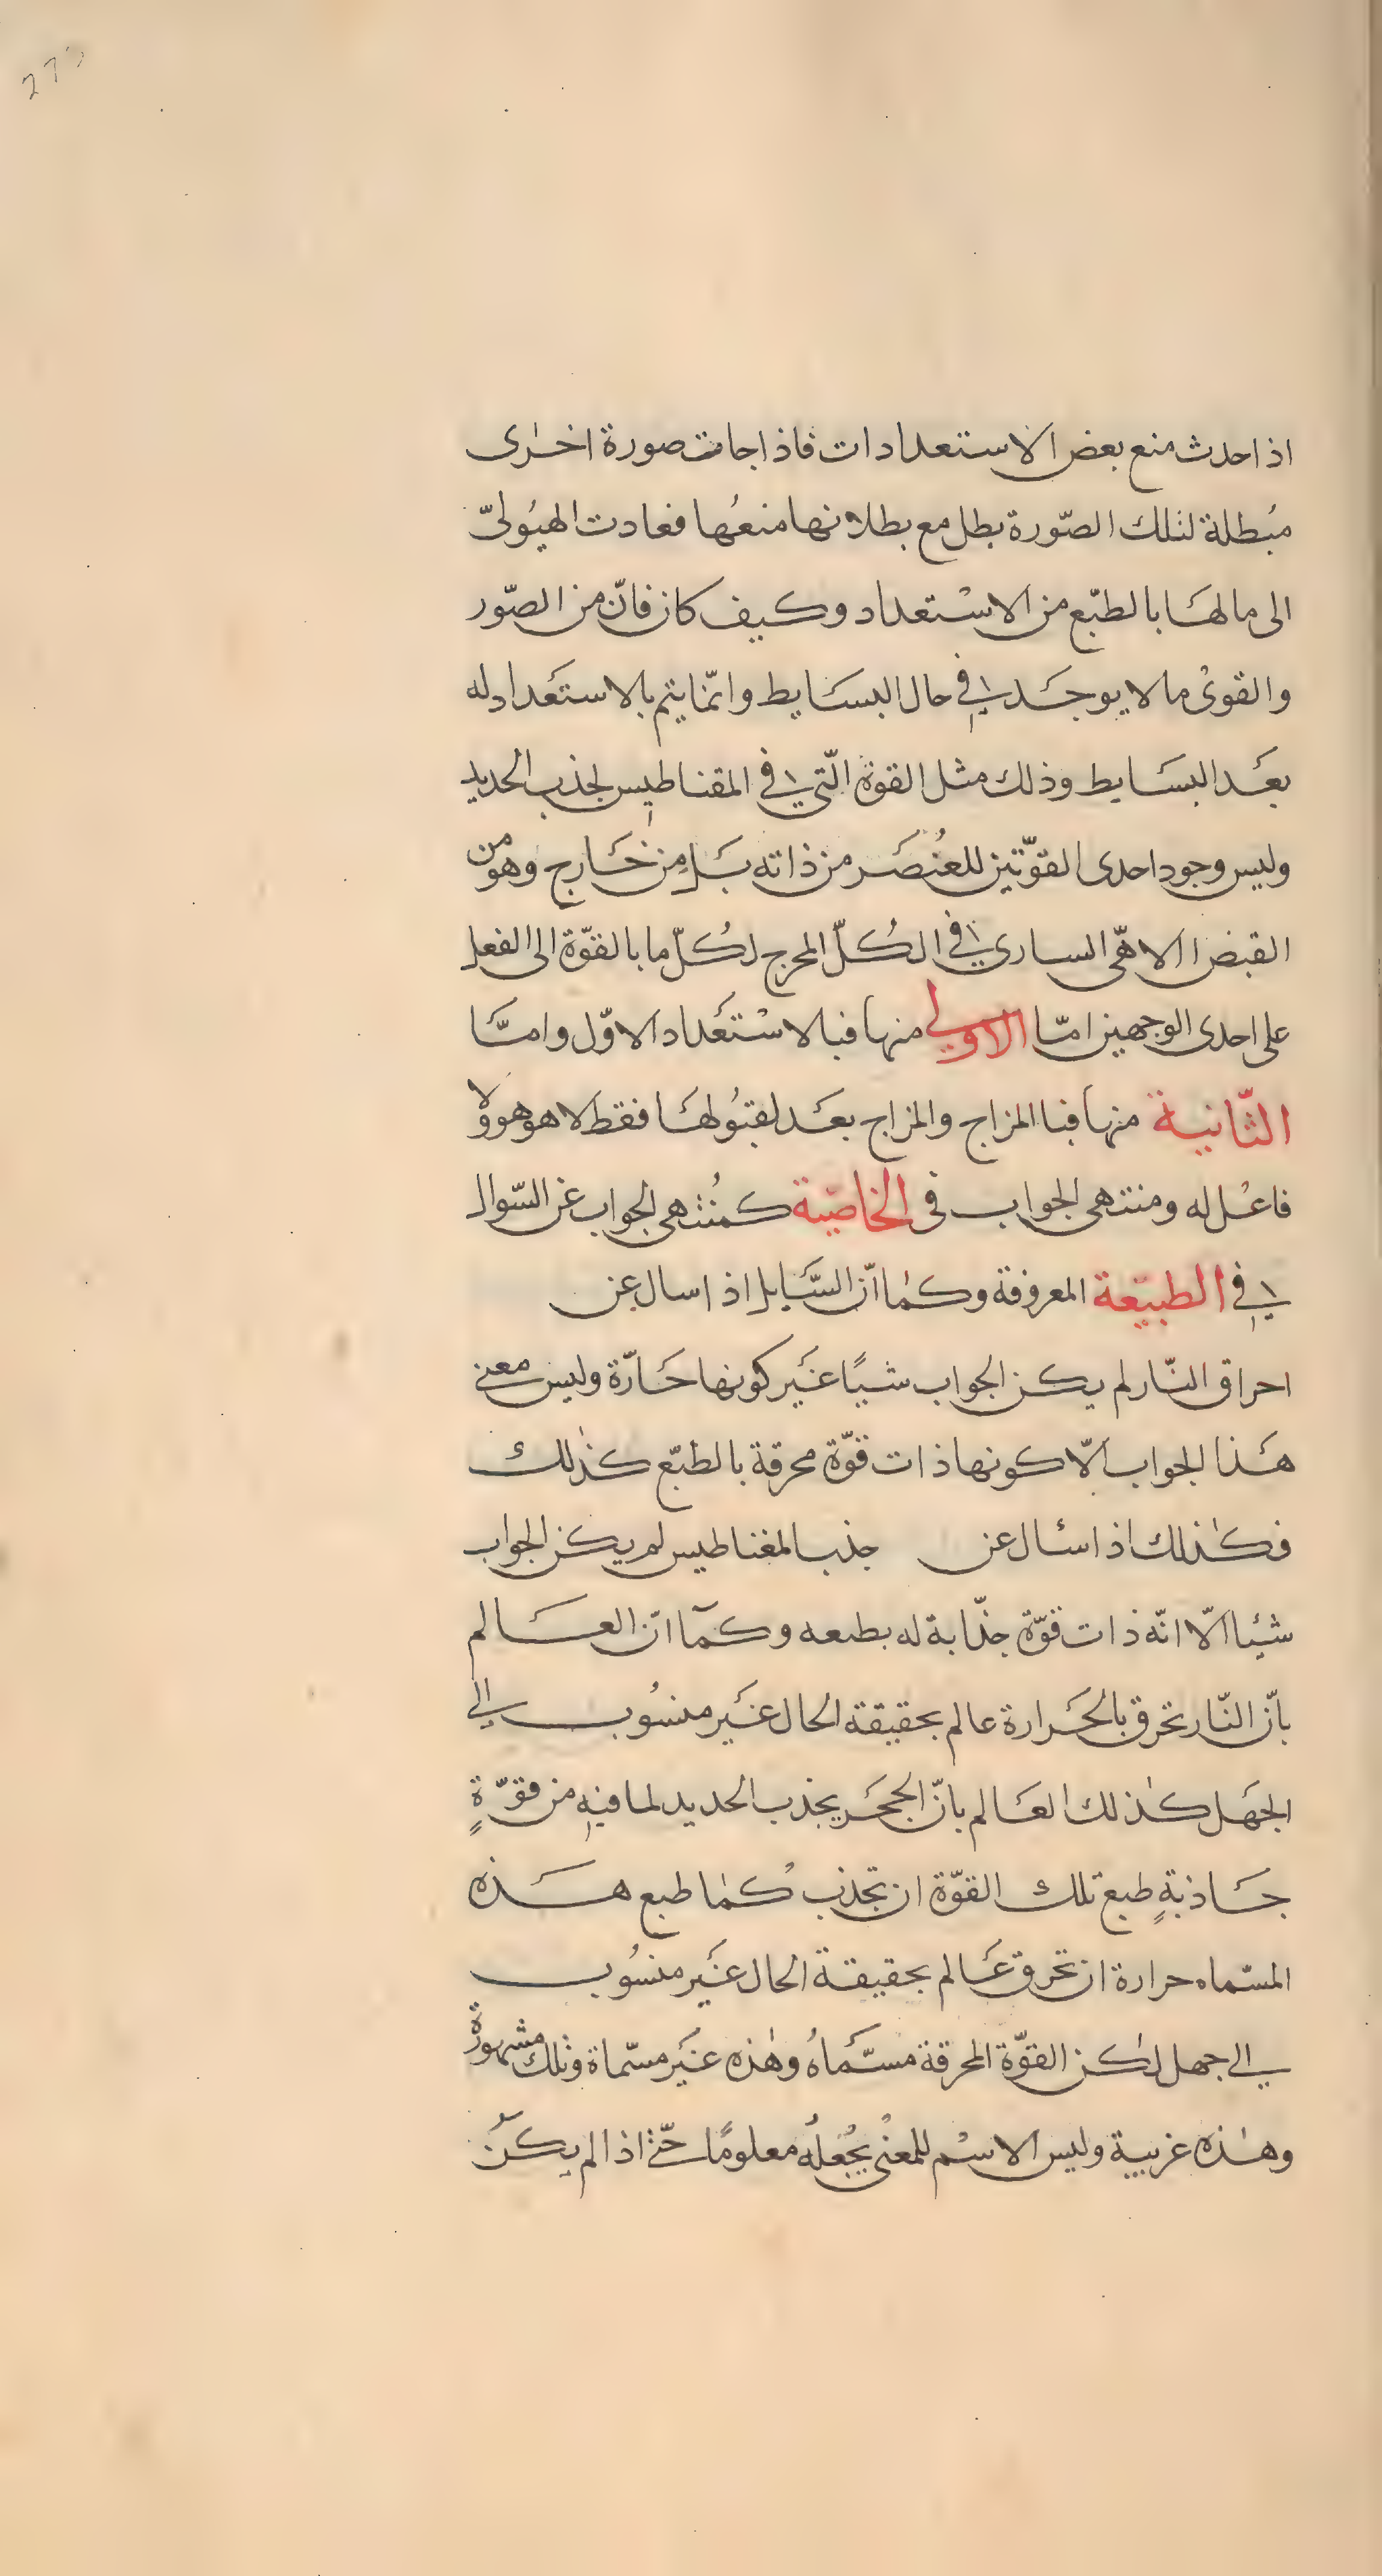 اذا حدث منع بعض الاستعدادات فاذا جات صورة اخرى
مُبطلة لتلك الصّورة بطل مع بطلانها منعُها فعادت الهيُوليّ
الى ما لهَا بالطبّع من الاسْتعداد وكيف كان فانّ من الصّور
والقوىْ ما لا يوجَد في حال البسَايط وانّما يتم بالاستعَداد له
بعَد البسَايط وذلك مثل القوة الّتي في المقناطيس لجذب الحديد
وليس وجود احدى القوّتين للعُنصَر من ذاته بَل مِن خَارج وهو من
القبض الالاهّى السارى في الكُلّ المحرج لكُلّ ما بالقوّة الى الفعل
على احدى الوجهين امّا الاولي منها فبالاسْتعَداد الاوّل وامَّا
الثّانيـة منها فبا المزاج والمزاج بعَد لقبُولهَا فقط لا هو هو ولا
فاعْل له ومنتهى الجواب في الخاصّية كمنُتهى الجواب عن السّوال
في الطبيّعة المعروفة وكمٰا انّ السَّايل اذا سال عن
احراق النّار لم يكن الجواب شيًا غيَر كونها حَارّة وليس معنى
هَذا الجواب الّا كونها ذات قوّة محرقة بالطبّع كذٰلك
فكذٰلك اذا سئال عن جذب المغناطيس لم يكن الجواب
شيئا الّا انّه ذات قوّة جذّابة له بطبعه وكمآ انّ العَالم
بأنّ النّار تحرق بالحَرارة عالم بحقيقة الحال غيَر منسُوب الى
الجهَل كذٰلك العَالم بانّ الحجَر يجذب الحديد لما فيهِ من قوّةٍ
جَاذبةٍ طبع تلك القوّة ان تجذب كمٰا طبع هَذه
المسّماه حرارة ان تحرق عَالم بحقيقة الحال غيَر منسُوب
الى جهل لكن القوّة المحرقة مسَّماهُ وهٰذه غيَر مسّماة وتلك مشهورةٌ
وهٰذه غريبة وليس الاسْم للمعنىْ يجُعلهُ معلومًا حتّى اذا لم يكنُ